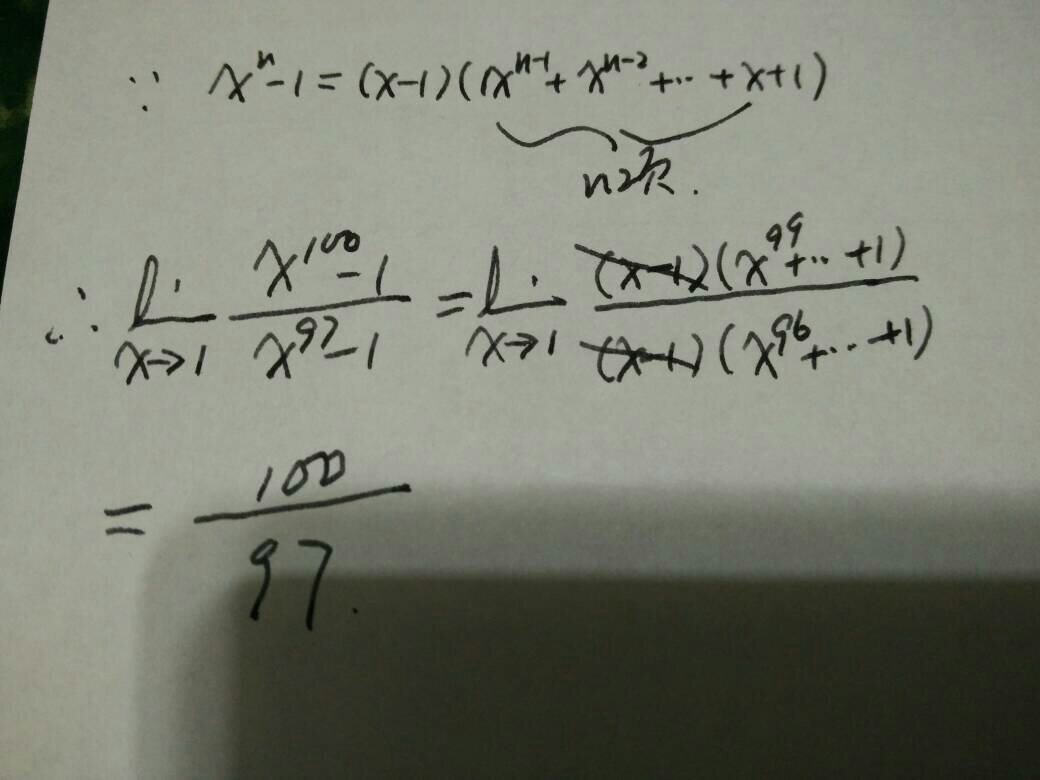 ∵ xⁿ-1=(x-1)(xⁿ⁻¹+xⁿ⁻²+…+x+1)
n次.
∴ lim x→1 (x¹⁰⁰-1)/(x⁹⁷-1) = lim x→1 (x-1)(x⁹⁹+…+1)/(x-1)(x⁹⁶+…+1)
= 100/97.